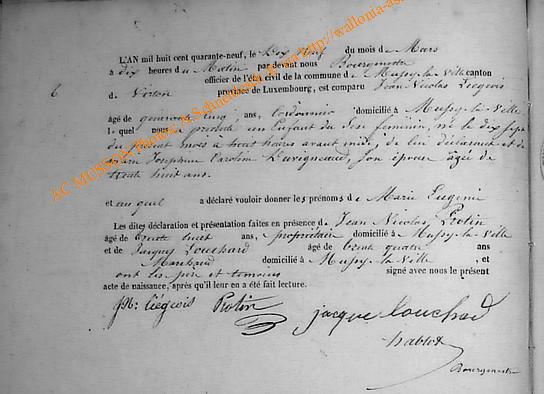 L'AN mil huit cent quarante-neuf, le Dix neuf du mois de Mars
à dix heures du Matin par devant nous Bourgmestre
officier de l'état civil de la commune de Mussy-la-Ville canton
6
de Virton province de Luxembourg, est comparu Jean Nicolas Liégeois
âgé de quarante cinq ans, Cordonnier domicilié à Mussy-la-Ville
lequel nous a présenté un Enfant du Sexe féminin, né le dix sept
du présent mois à huit heures avant midi, de lui déclarant et de
Marie Josephine Caroline son épouse âgée de
trente huit ans.
et auquel a déclaré vouloir donner les prénoms de Marie Eugenie
Les dites déclaration et présentation faites en présence de Jean Nicolas Protin
âgé de trente huit ans, propriétaire domicilié à Mussy-la-Ville
et de Jacques Louchard âgé de trente quatre ans
Marchand domicilié à Mussy-la-Ville, et
ont les père et temoins signé avec nous le présent
acte de naissance, après qu'il leur en a été fait lecture.
JN: Liégeois Protin jacque Louchard
Bourgmestre
AC MUSSON Photos: N. Schneiders, © at http://wallonia-as